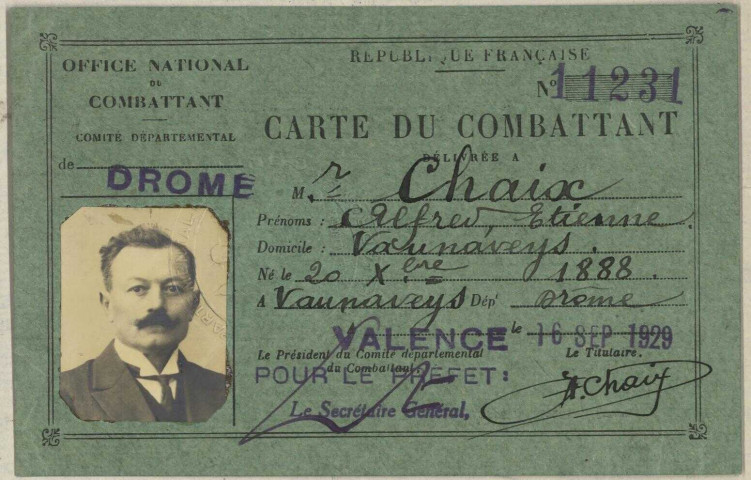 OFFICE NATIONAL
DU
COMBATTANT
COMITÉ DÉPARTEMENTAL
de DROME
RÉPUBLIQUE FRANÇAISE
N° 11231
CARTE DU COMBATTANT
DÉLIVRÉE A
M. r Chaix
Prénoms : Alfred, Etienne.
Domicile : Vaunaveys.
Né le 20 Xbre 1888.
A Vaunaveys Dépt Drôme
VALENCE le 16 SEP 1929
Le Président du Comité départemental
du Combattant,
Le Titulaire.
POUR LE PRÉFET :
Le Secrétaire Général,
A. Chaix